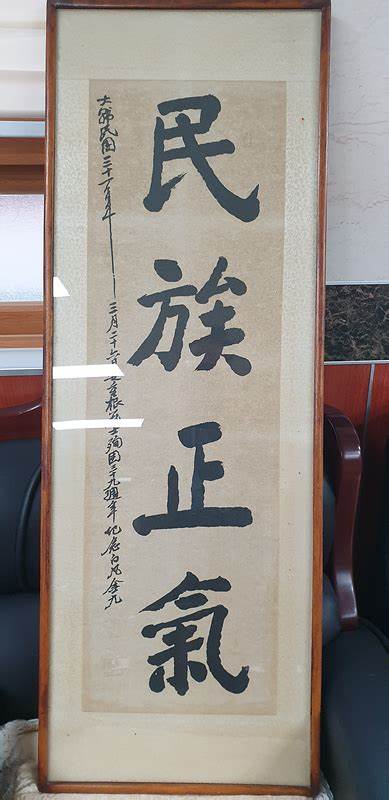 民族正氣
大韓民國三十一年三月二十六日安重根義士殉國三十九週年紀念白凡金九